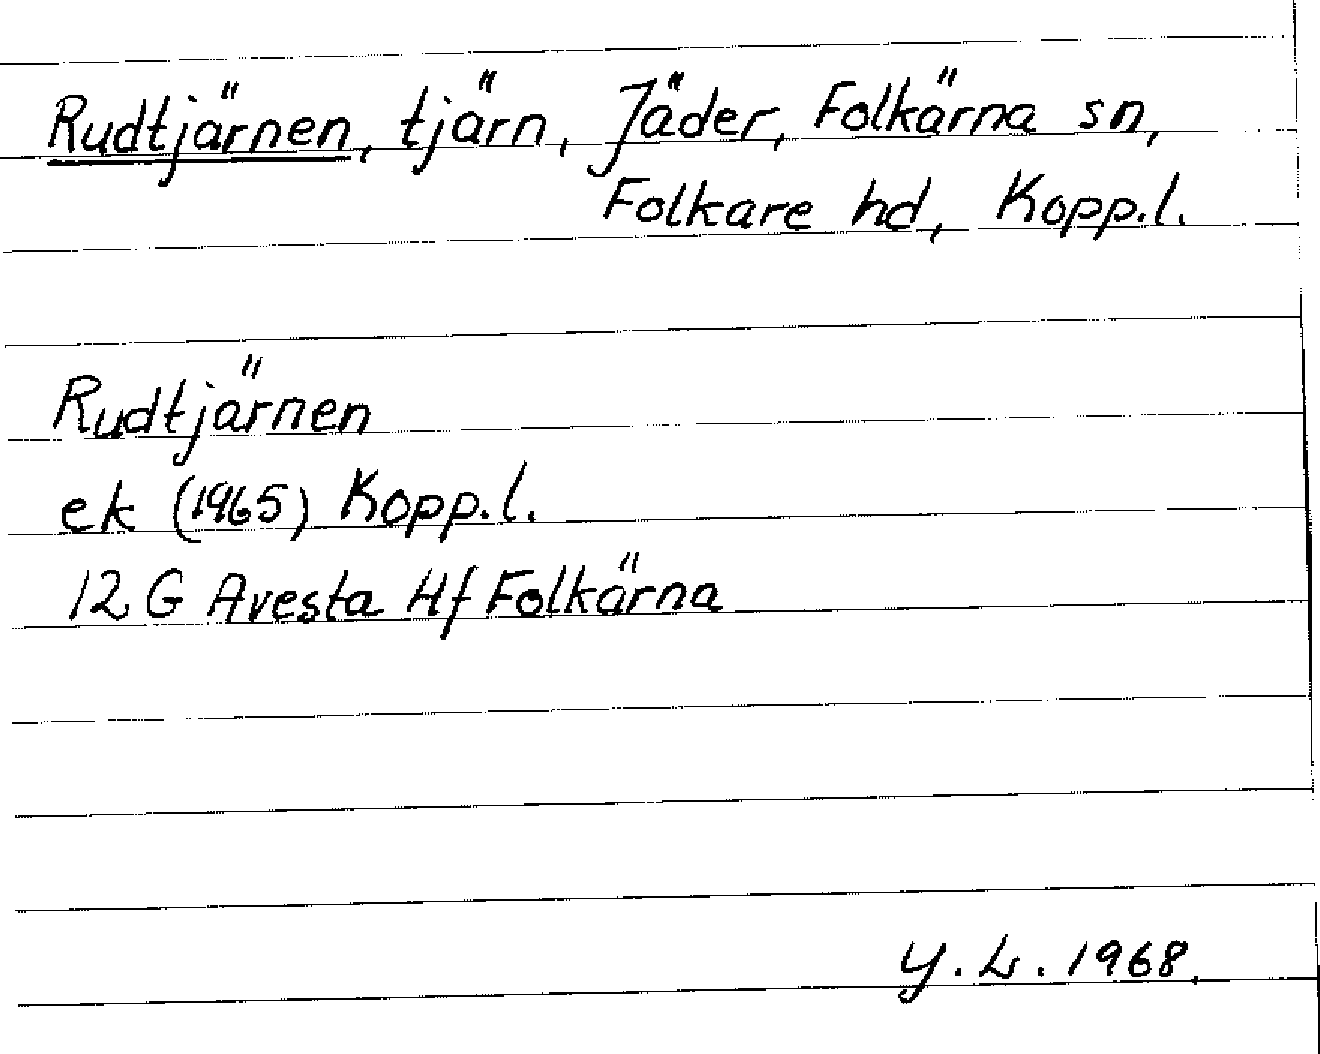 Rudtjärnen, tjärn, Jäder, Folkärna sn,
Folkare hd, Kopp.l.
Rudtjärnen
ek (1965) Kopp.l.
12 G Avesta 4f Folkärna
Y. L. 1968.